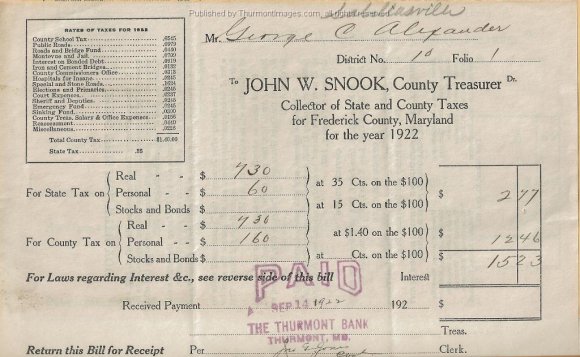 Published by Thurmontimages.com
Sabillasville
Mr. George C Alexander
District No. 10 Folio 1
To JOHN W. SNOOK, County Treasurer Dr.
Collector of State and County Taxes
for Frederick County, Maryland
for the year 1922
RATES OF TAXES FOR 1922
County School Tax
Public Roads
Roads and Bridge Fund
Montevue and Jail
Interest on Bonded Debt
Iron and Cement Bridges
County Commissioners Office
Hospitals for Insane
Special and Stone Roads
Elections and Primaries
Court Expenses
Sheriff and Deputies
Emergency Fund
Sinking Fund
County Treas. Salary & Office Expenses
Reassessment
Miscellaneous
Total County Tax $1.40.00
State Tax .35
For State Tax on
Real $ 730
Personal $ 60
at 35 Cts. on the $100
Stocks and Bonds $
at 15 Cts. on the $100
$ 277
For County Tax on
Real $ 730
Personal $ 160
at $1.40 on the $100
$ 1246
Stocks and Bonds $
at Cts. on the $100
1523
For Laws regarding Interest &c., see reverse side of this bill Interest
PAID
SEP 14 1922
THE THURMONT BANK
THURMONT, MD.
Received Payment 192 $
Treas.
Return this Bill for Receipt Per Clerk.